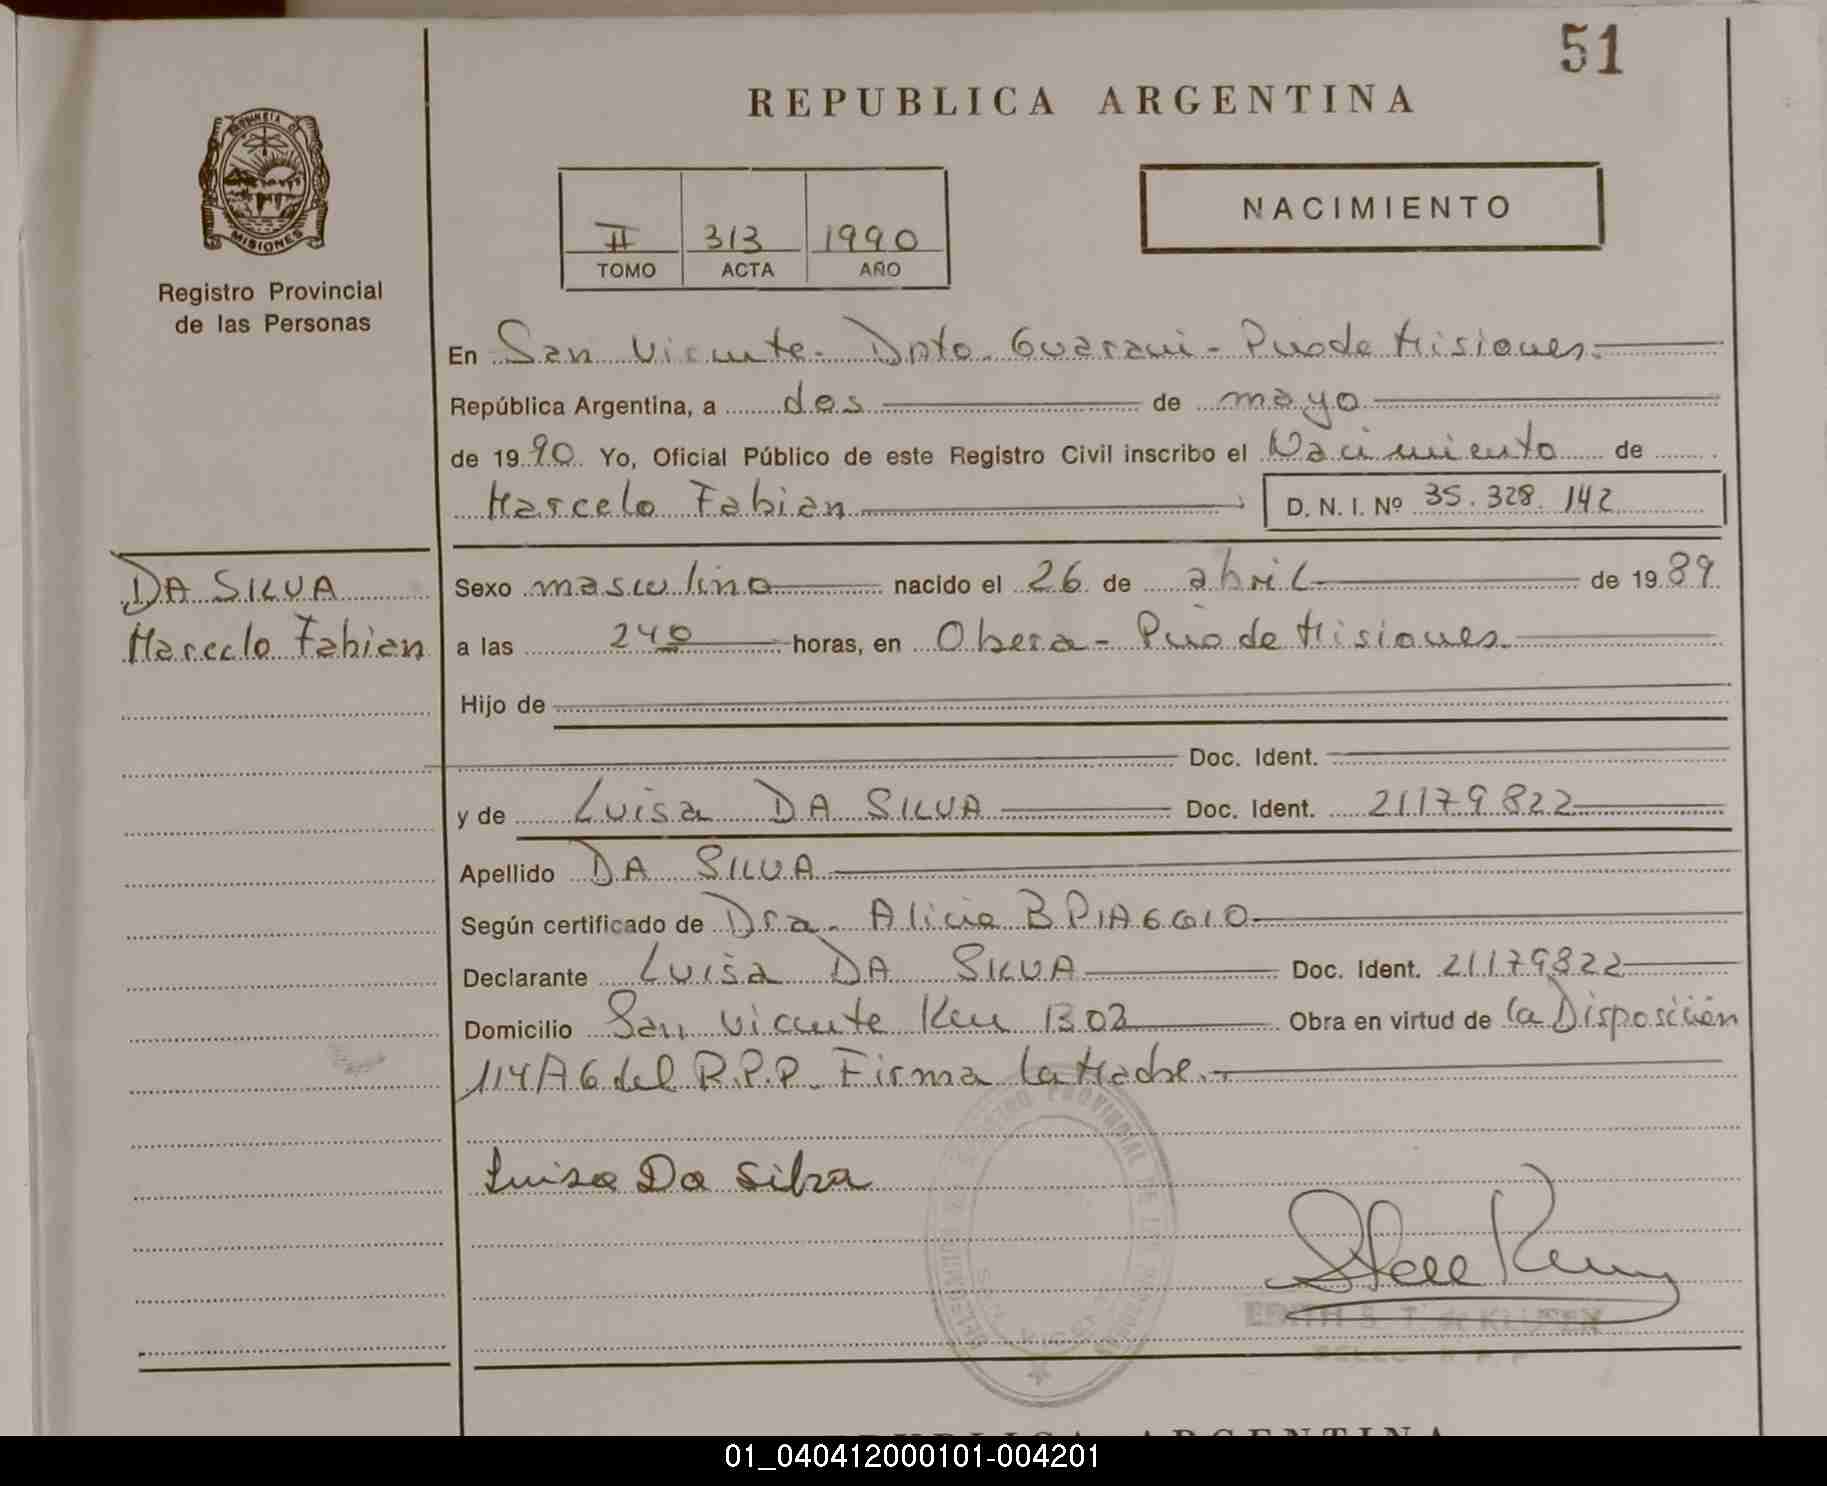 51
REPUBLICA ARGENTINA
PROVINCIA DE
MISIONES
Registro Provincial
de las Personas
II 313 1990
TOMO ACTA AÑO
NACIMIENTO
En San Vicente - Dpto. Guarani - Pcia de Misiones.
República Argentina, a dos de mayo
de 1990 Yo, Oficial Público de este Registro Civil inscribo el Nacimiento de
Marcelo Fabian D. N. I. Nº 35.328.142
DA SILVA
Marcelo Fabian
Sexo masculino nacido el 26 de abril de 1989
a las 240 horas, en Obera - Pcia de Misiones.
Hijo de
Doc. Ident.
y de Luisa DA SILVA Doc. Ident. 21179822
Apellido DA SILVA
Según certificado de Dra. Alicia B PIAGGIO
Declarante Luisa DA SILVA Doc. Ident. 21179822
Domicilio San Vicente Km 1302 Obra en virtud de la Disposición
114/A6 del R.P.P. Firma la Madre.
Luisa Da Silva
REGISTRO PROVINCIAL DE LAS PERSONAS
EDITH S. T. de
REPUBLICA ARGENTINA
01_040412000101-004201